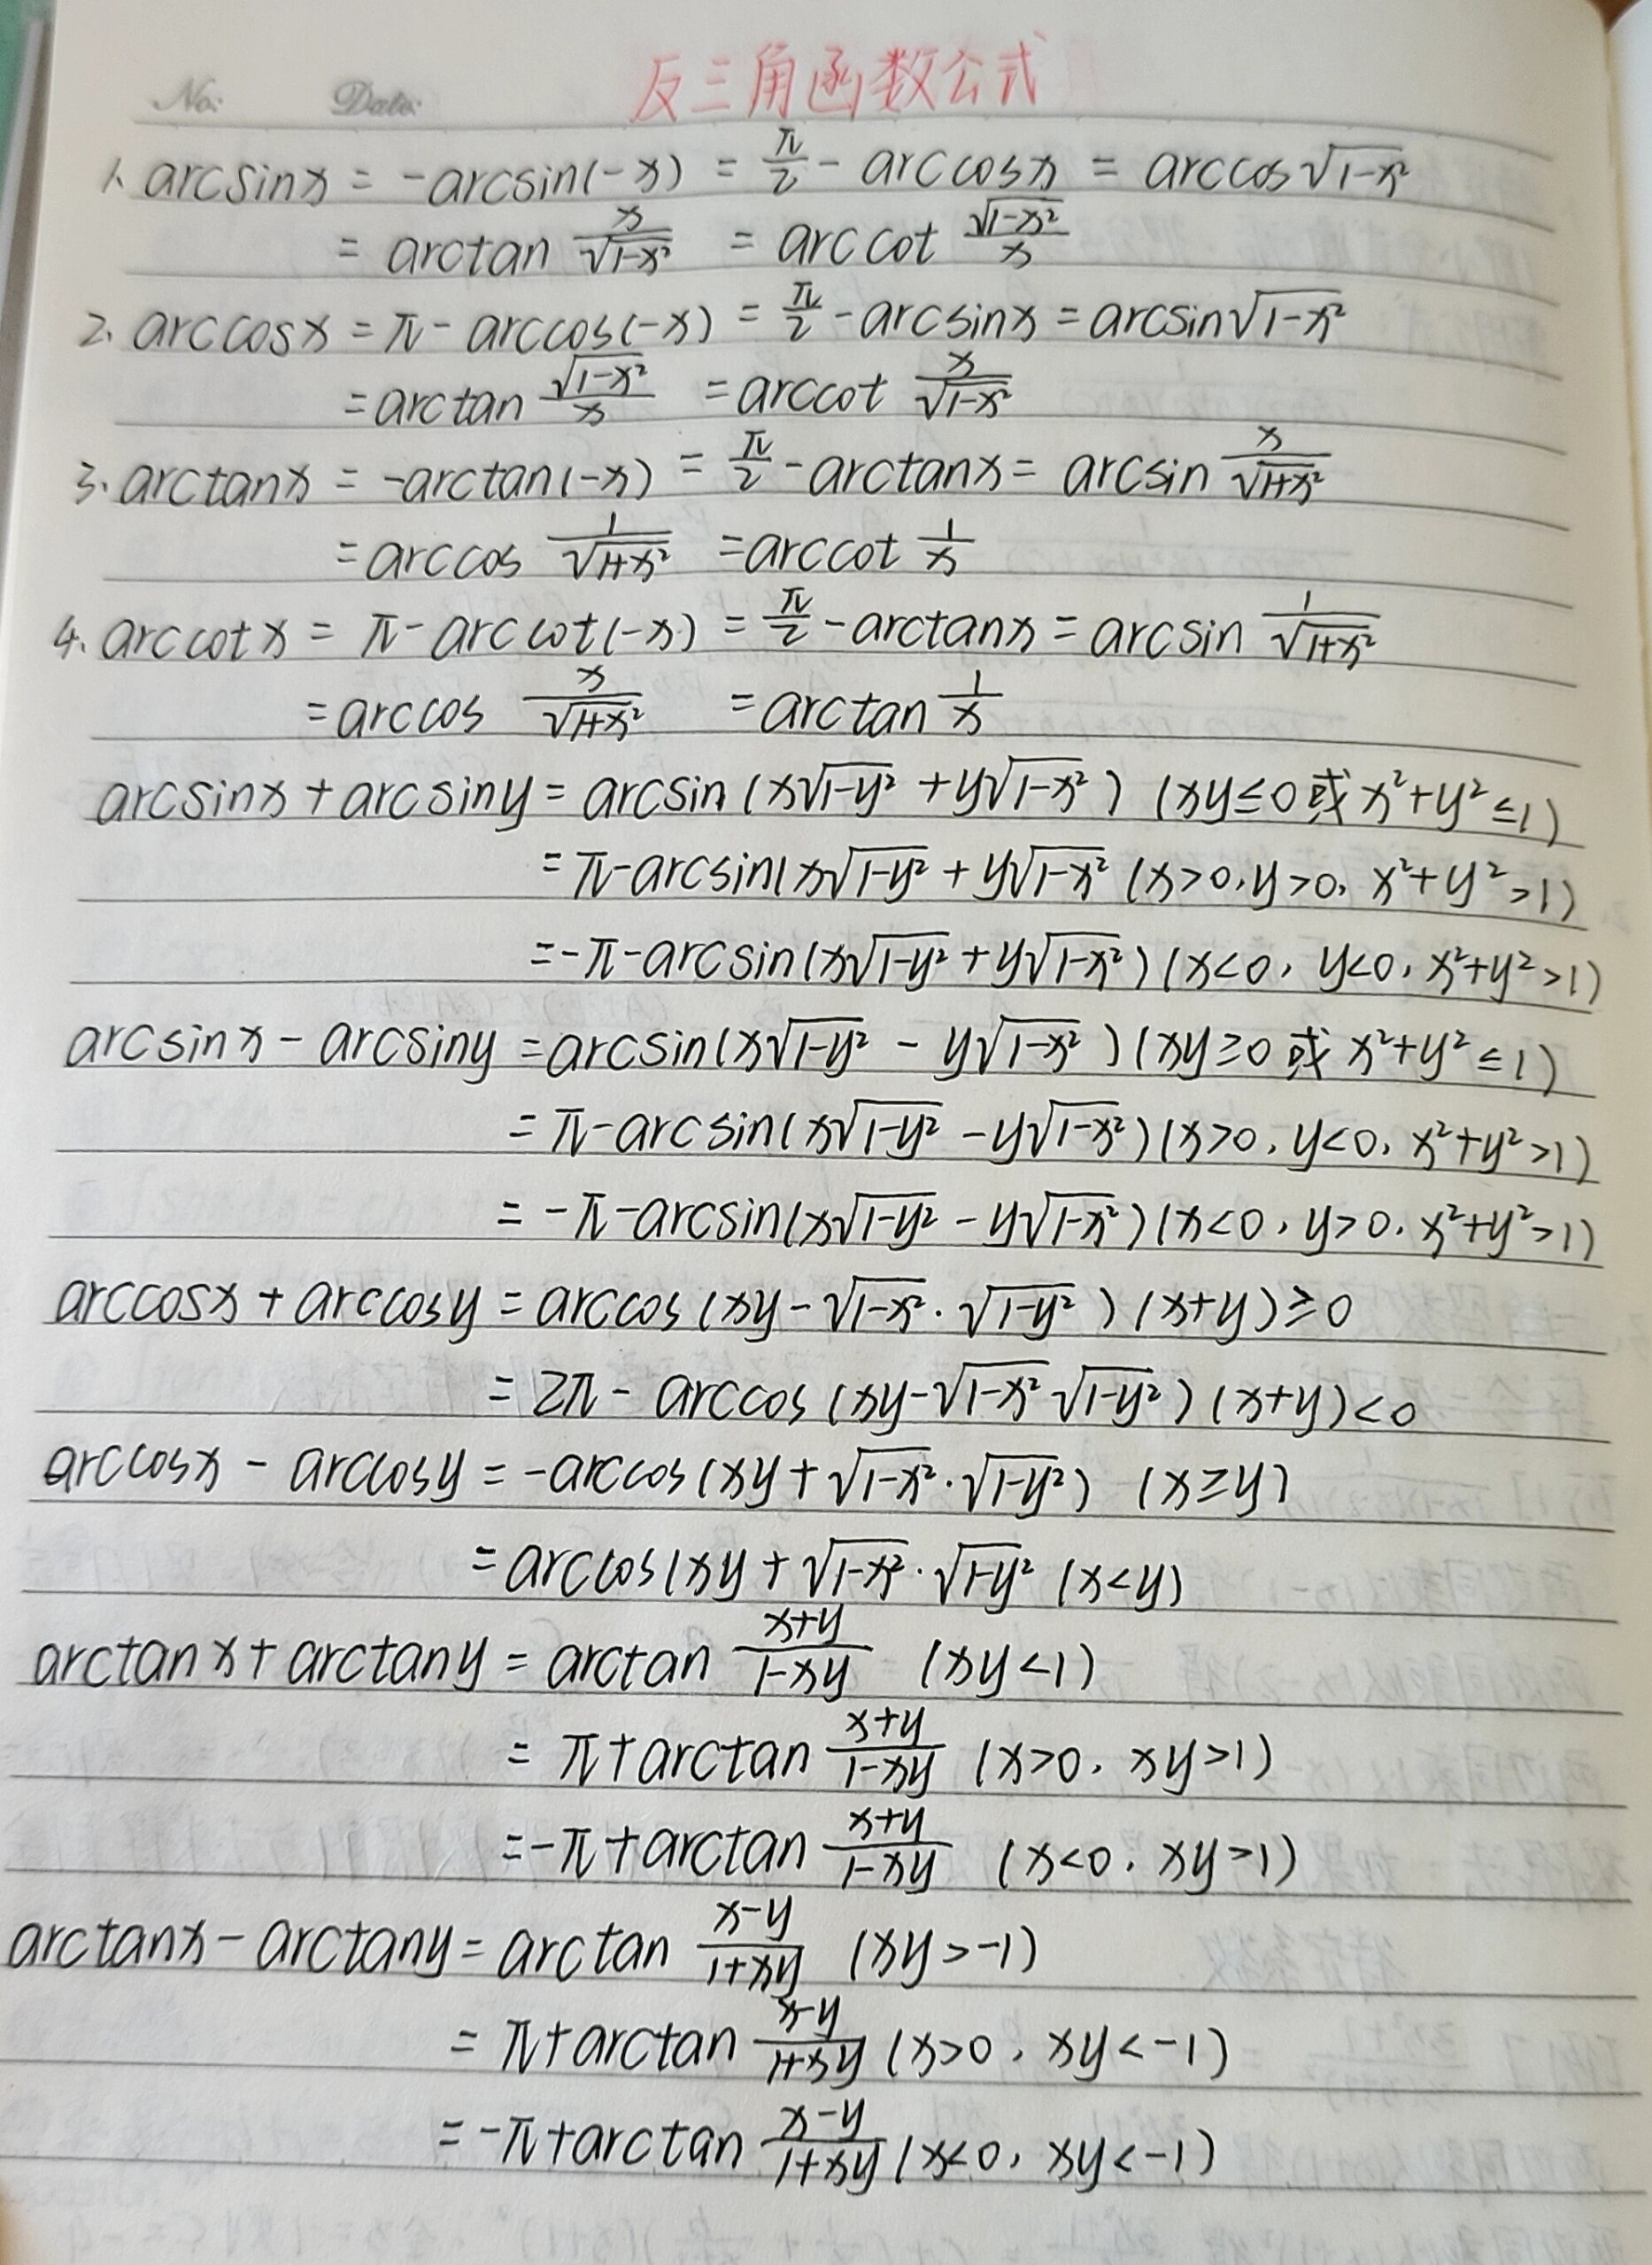 No: Date: 反三角函数公式
1. arcsinx = -arcsin(-x) = π/2 - arccosx = arccos√(1-x²)
= arctan x/√(1-x²) = arccot √(1-x²)/x
2. arccosx = π - arccos(-x) = π/2 - arcsinx = arcsin√(1-x²)
= arctan √(1-x²)/x = arccot x/√(1-x²)
3. arctanx = -arctan(-x) = π/2 - arctanx = arcsin x/√(1+x²)
= arccos 1/√(1+x²) = arccot 1/x
4. arccotx = π - arccot(-x) = π/2 - arctanx = arcsin 1/√(1+x²)
= arccos x/√(1+x²) = arctan 1/x
arcsinx + arcsiny = arcsin (x√(1-y²) + y√(1-x²)) (xy≤0或x²+y²≤1)
= π-arcsin(x√(1-y²) + y√(1-x²) (x>0,y>0, x²+y²>1)
= -π-arcsin(x√(1-y²) + y√(1-x²)) (x<0, y<0, x²+y²>1)
arcsinx - arcsiny = arcsin(x√(1-y²) - y√(1-x²)) (xy≥0或x²+y²≤1)
= π-arcsin(x√(1-y²) - y√(1-x²)) (x>0, y<0, x²+y²>1)
= -π-arcsin(x√(1-y²) - y√(1-x²)) (x<0, y>0, x²+y²>1)
arccosx + arccosy = arccos (xy-√(1-x²)·√(1-y²)) (x+y)≥0
= 2π - arccos (xy-√(1-x²)√(1-y²)) (x+y)<0
arccosx - arccosy = -arccos (xy+√(1-x²)·√(1-y²)) (x≥y)
= arccos(xy+√(1-x²)·√(1-y²) (x<y)
arctanx + arctany = arctan (x+y)/(1-xy) (xy<1)
= π+arctan (x+y)/(1-xy) (x>0, xy>1)
= -π+arctan (x+y)/(1-xy) (x<0, xy>1)
arctanx - arctany = arctan (x-y)/(1+xy) (xy>-1)
= π+arctan (x-y)/(1+xy) (x>0, xy<-1)
= -π+arctan (x-y)/(1+xy) (x<0, xy<-1)